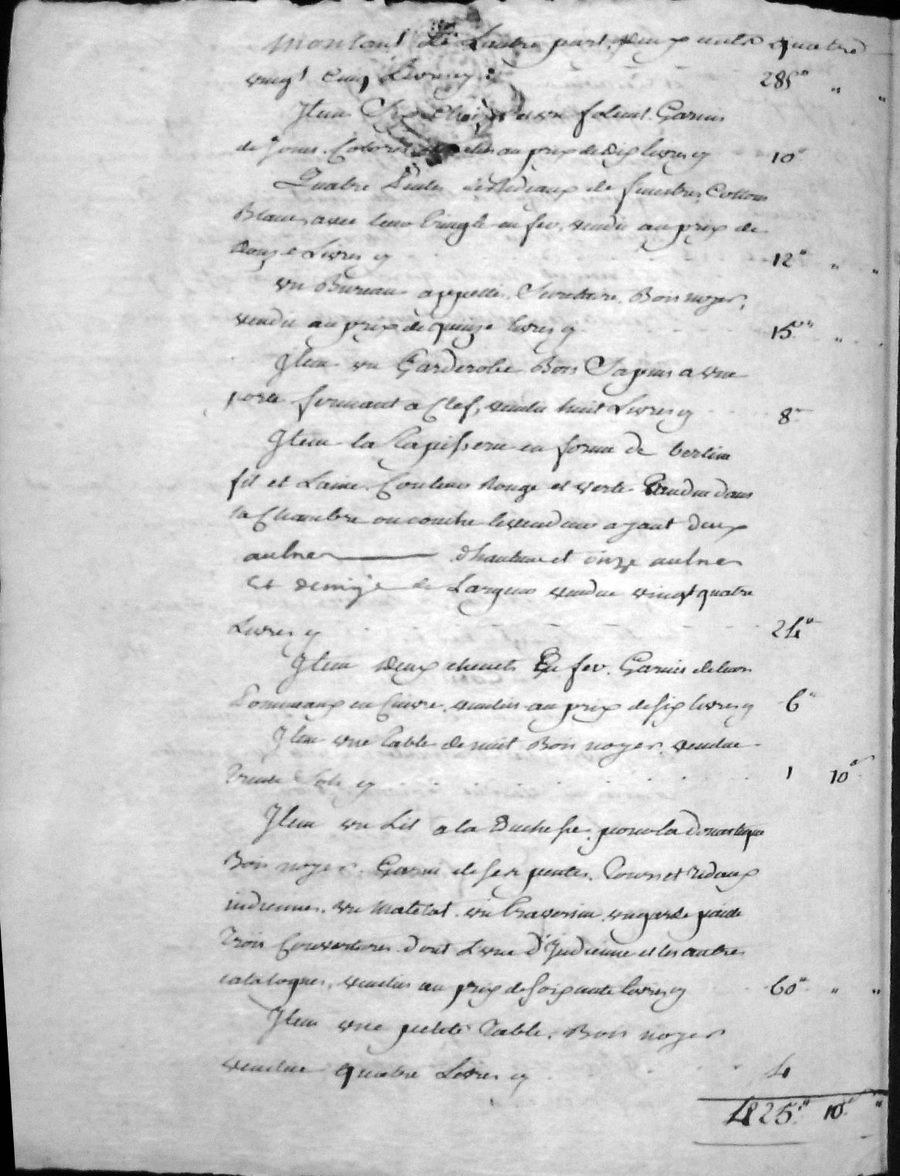 montant de Lautre part, deux cents quatre
vingt cinq Livres cy : 285" "  "
Item Six chaises avec fauteuil Garnis
de Jonc. Colorés au prix de Dix livres cy 10"
Quatre Pentes Rideaux de fenetres Cotton
Blanc, avec leur tringle en fer, vendu au prix de
douze Livres cy 12" " "
un Bureau appellé, Secretaire, Bois noyer,
vendu au prix de quinze livres cy 15" "
Item un Garderobe Bois Sapin a une
porte fermant a Clef, vendu huit Livres cy 8"
Item la tapisserie en forme de bertine
fil et Laine, Couleur Rouge et verte tendue dans
la Chambre ou couche le vendeur ayant deux
aulnes ——— d'hauteur et onze aulnes
et demye de Largeur vendue vingt quatre
Livres cy 24"
Item deux chenets En fer. Garnis de leurs
Pommeaux en Cuivre, vendus au prix de six livres cy 6"
Item une table de nuit Bois noyer, vendue
Trente Sols cy 1 10"
Item un Lit a la Duchesse, pour la domestique
Bois noyer. Garni de ses pentes. Tours et ridaux
indiennes, un Matelat, un traversin, un garde paille
Trois Couvertures dont L'une d'Indienne et les autres
catalognes, vendus au prix de soixante livres cy 60 " "
Item une petite Table, Bois noyer
vendue quatre Livres cy 4
425" 10" "